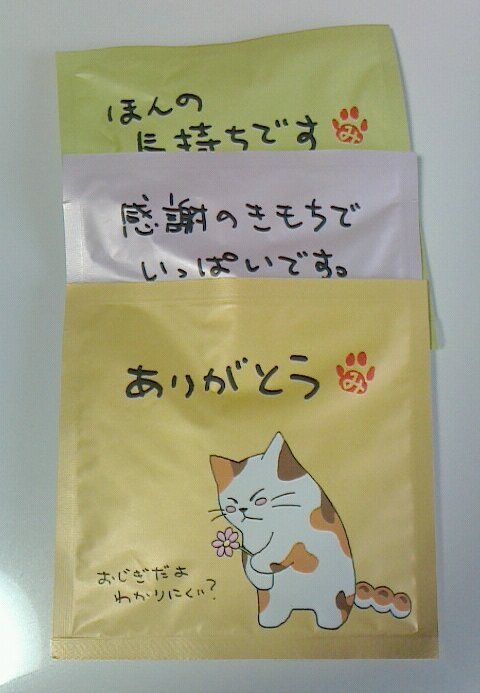 ほんの
気持ちです
み
感謝のきもちで
いっぱいです。
ありがとう
み
おじぎだよ
わかりにくい?